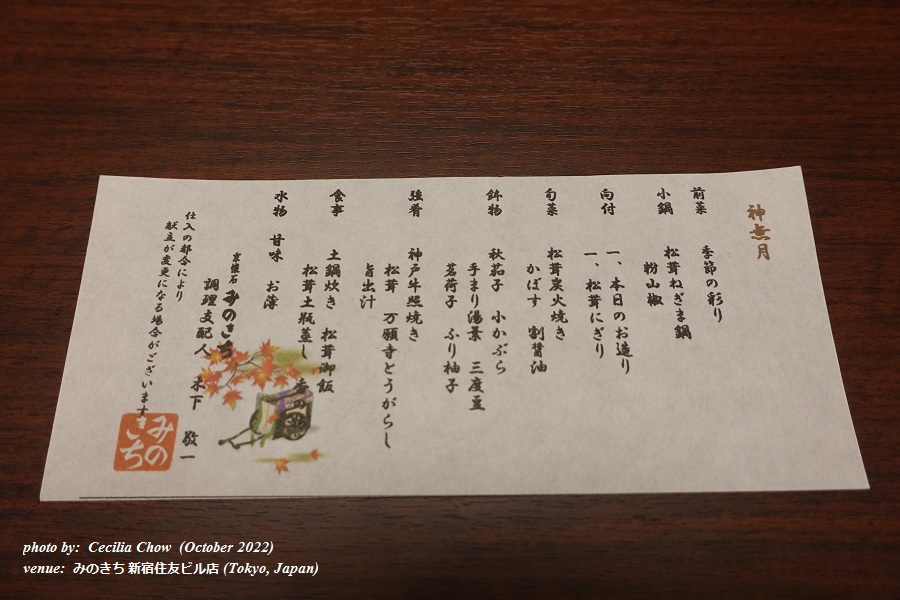 神無月
前菜　季節の彩り
小鍋　松茸ねぎま鍋
粉山椒
向付　一、本日のお造り
一、松茸にぎり
旬菜　松茸炭火焼き
かぼす　割醤油
鉢物　秋茄子　小かぶら
手まり湯葉　三度豆
茗荷子　ふり柚子
強肴　神戸牛照焼き
松茸　万願寺とうがらし
旨出汁
食事　土鍋炊き　松茸御飯
松茸土瓶蒸し　香の物
水物　甘味　お薄
京懐石　みのきち
調理支配人　木下　敬一
仕入の都合により
献立が変更になる場合がございます
みの
きち
photo by: Cecilia Chow (October 2022)
venue: みのきち 新宿住友ビル店 (Tokyo, Japan)